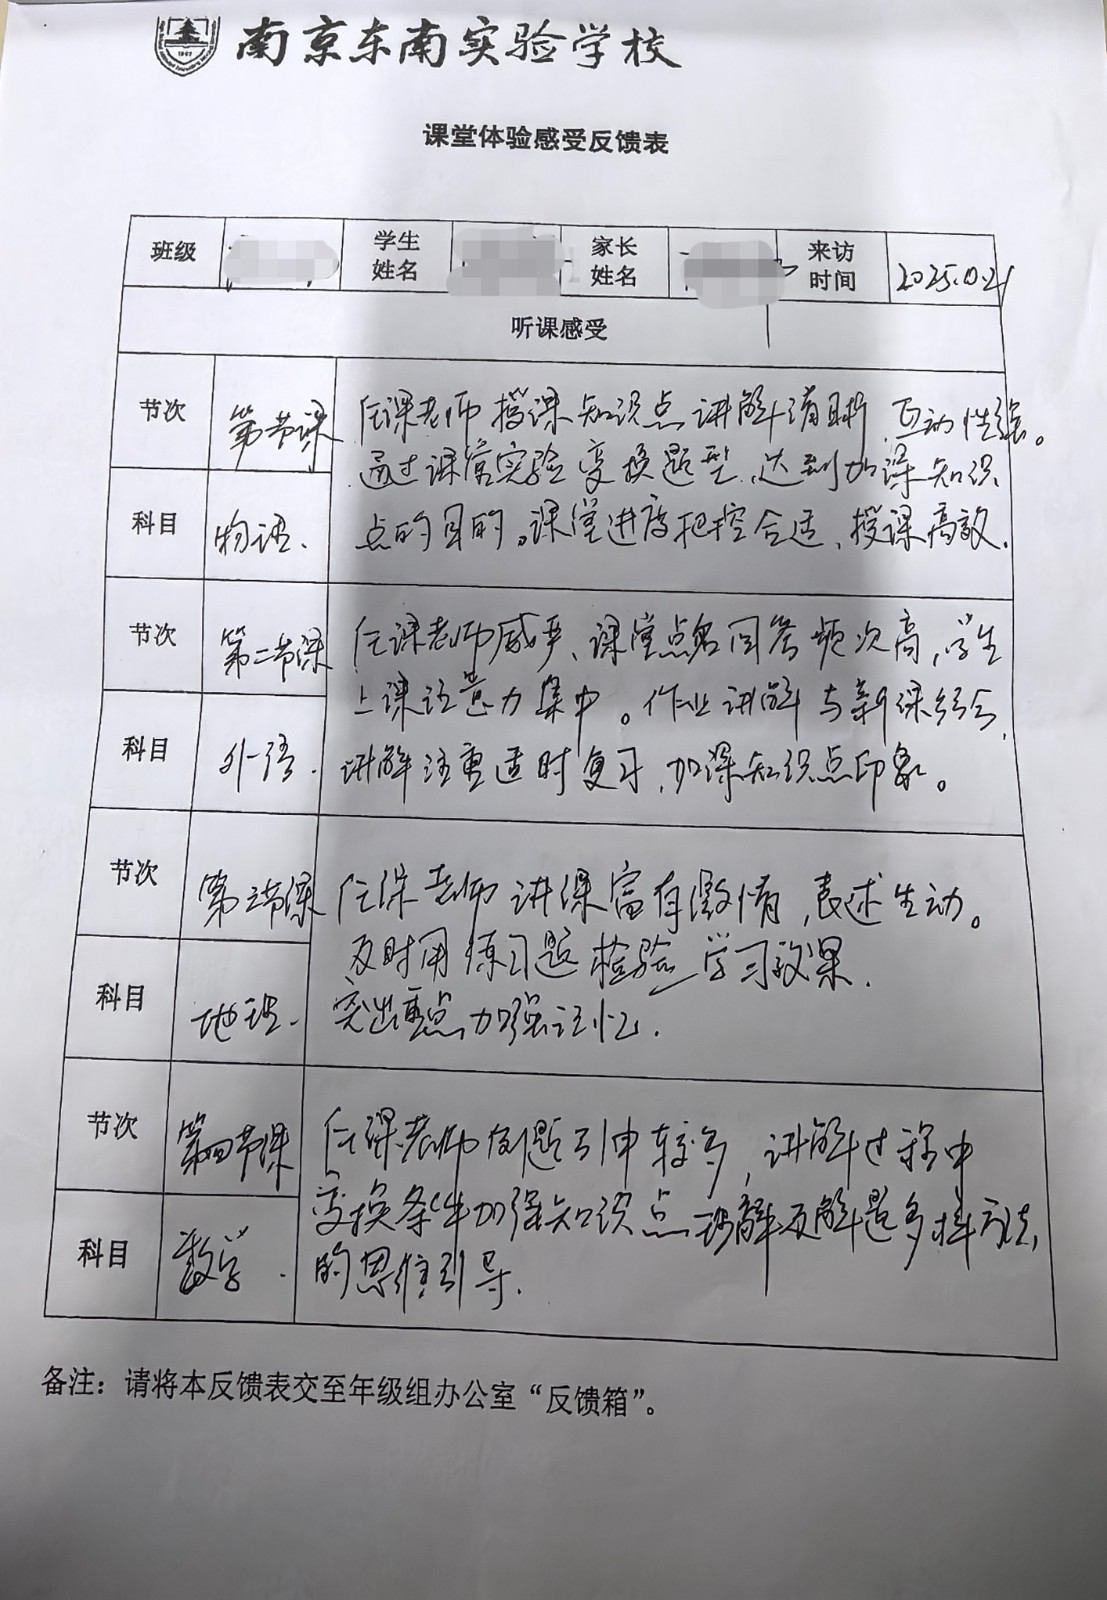 南京东南实验学校
课堂体验感受反馈表
班级 学生姓名 家长姓名 来访时间 2025.10.21
听课感受
节次 第一节课 任课老师授课知识点讲解清晰、互动性强。
通过课堂实验变换题型、达到加深知识
科目 物理. 点的目的。课堂进度把控合适、授课高效.
节次 第二节课 任课老师威严、课堂点名回答频次高,学生
上课注意力集中。作业讲解与新课结合,
科目 外语. 讲解注重适时复习,加深知识点印象。
节次 第三节课 任课老师讲课富有激情,表述生动。
及时用练习题检验学习效果.
科目 地理. 突出重点加强记忆.
节次 第四节课 任课老师例题引申较多,讲解过程中
变换条件加强知识点理解及解题多样方法
科目 数学. 的思维引导.
备注：请将本反馈表交至年级组办公室“反馈箱”。